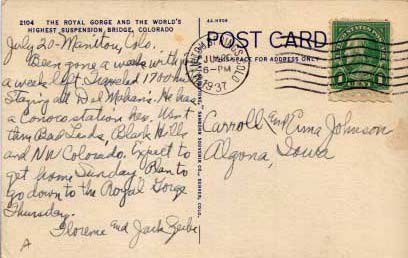 2104 THE ROYAL GORGE AND THE WORLD'S
HIGHEST SUSPENSION BRIDGE, COLORADO
July 20 - Manitou, Colo.
Been gone a week with
a week left. Traveled 1700 mi.
Staying at Del Mahan's. He has
a Conoco station here. Went
thru Bad Lands, Black Hills
and NW Colorado. Expect to
get home Sunday. Plan to
go down to the Royal Gorge
Thursday.
Florence and Jack
POST CARD
THIS SPACE FOR ADDRESS ONLY
MANITOU SPRINGS COLO
JUL
6-PM
1937
1 CENT 1
Carroll and Erma Johnson
Algona, Iowa